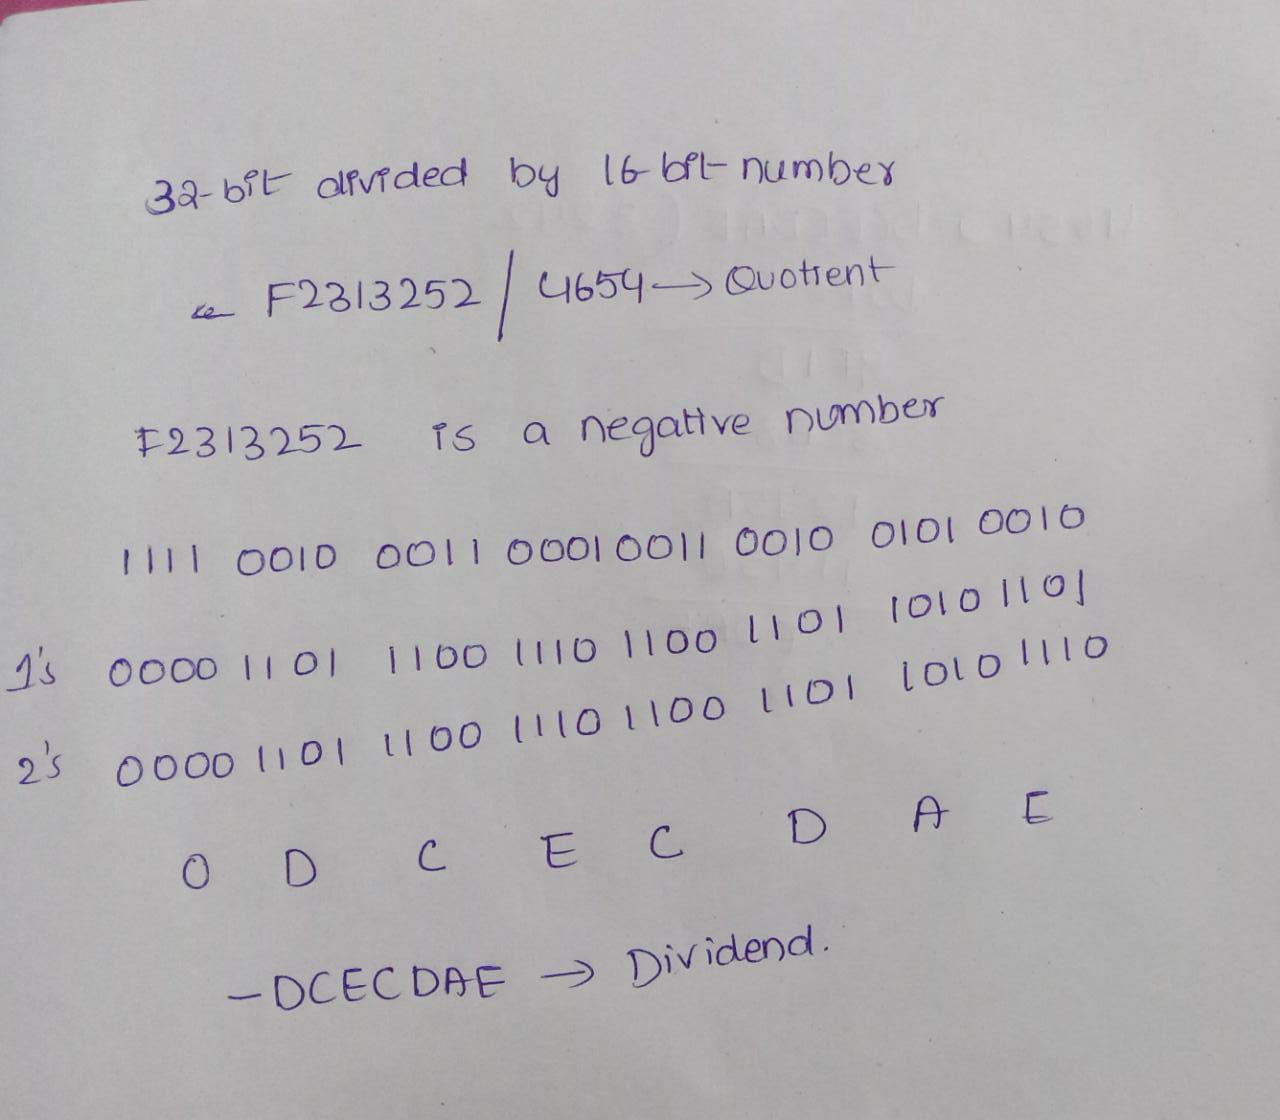 32-bit divided by 16-bit number
F2313252 / 4654 → Quotient
F2313252 is a negative number
1111 0010 0011 0001 0011 0010 0101 0010
1's 0000 1101 1100 1110 1100 1101 1010 1101
2's 0000 1101 1100 1110 1100 1101 1010 1110
0 D C E C D A E
-DCECDAE → Dividend.